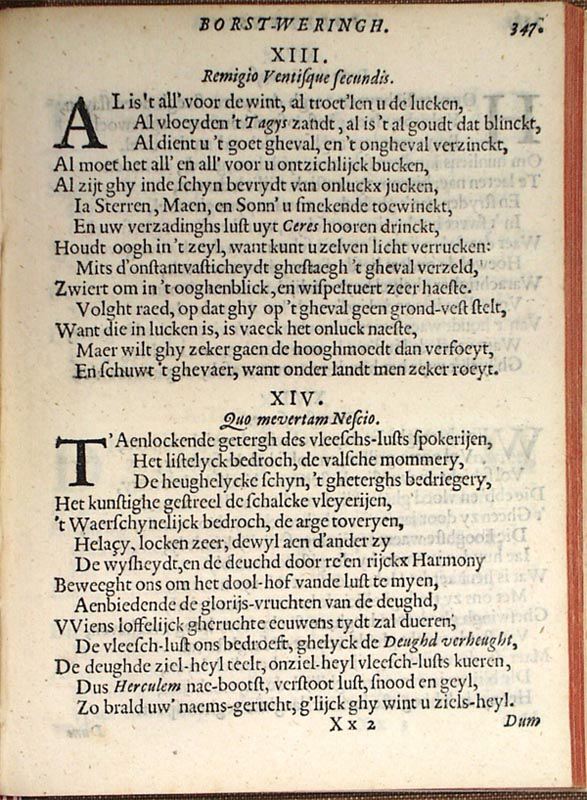 BORST-WERINGH. 347.
XIII.
Remigio Ventisque secundis.
AL is't all' voor de wint, al troet'len u de lucken,
Al vloeyden 't Tagys zandt, al is 't al goudt dat blinckt,
Al dient u 't goet gheval, en 't ongheval verzinckt,
Al moet het all' en all' voor u ontzichlijck bucken,
Al zijt ghy inde schyn bevrydt van onluckx jucken,
Ia Sterren, Maen, en Sonn' u smekende toewinckt,
En uw verzadinghs lust uyt Ceres hooren drinckt,
Houdt oogh in 't zeyl, want kunt u zelven licht verrucken:
Mits d'onstantvasticheydt ghestaegh 't gheval verzeld,
Zwiert om in 't ooghenblick, en wispeltuert zeer haeste.
Volght raed, op dat ghy op 't gheval geen grond-vest stelt,
Want die in lucken is, is vaeck het onluck naeste,
Maer wilt ghy zeker gaen de hooghmoedt dan verfoeyt,
En schuwt 't ghevaer, want onder landt men zeker roeyt.
XIV.
Quo mevertam Nescio.
T'Aenlockende getergh des vleeschs-lusts spokerijen,
Het listelyck bedroch, de valsche mommery,
De heughelycke schyn, 't gheterghs bedriegery,
Het kunstighe gestreel de schalcke vleyerijen,
't Waerschynelijck bedroch, de arge toveryen,
Helacy, locken zeer, dewyl aen d'ander zy
De wysheydt, en de deucht door re'en rijckx Harmony
Beweeght ons om het dool-hof vande lust te myen,
Aenbiedende de glorijs-vruchten van de deughd,
VViens loffelijck gheruchte eeuwens tydt zal dueren;
De vleesch-lust ons bedroeft, ghelyck de Deughd verheught,
De deughde ziel-heyl teelt, onziel-heyl vleesch-lusts kueren,
Dus Herculem nae-bootst, verstoot lust, snood en geyl,
Zo brald uw' naems-gerucht, g'lijck ghy wint u ziels-heyl.
Xx 2 Dum